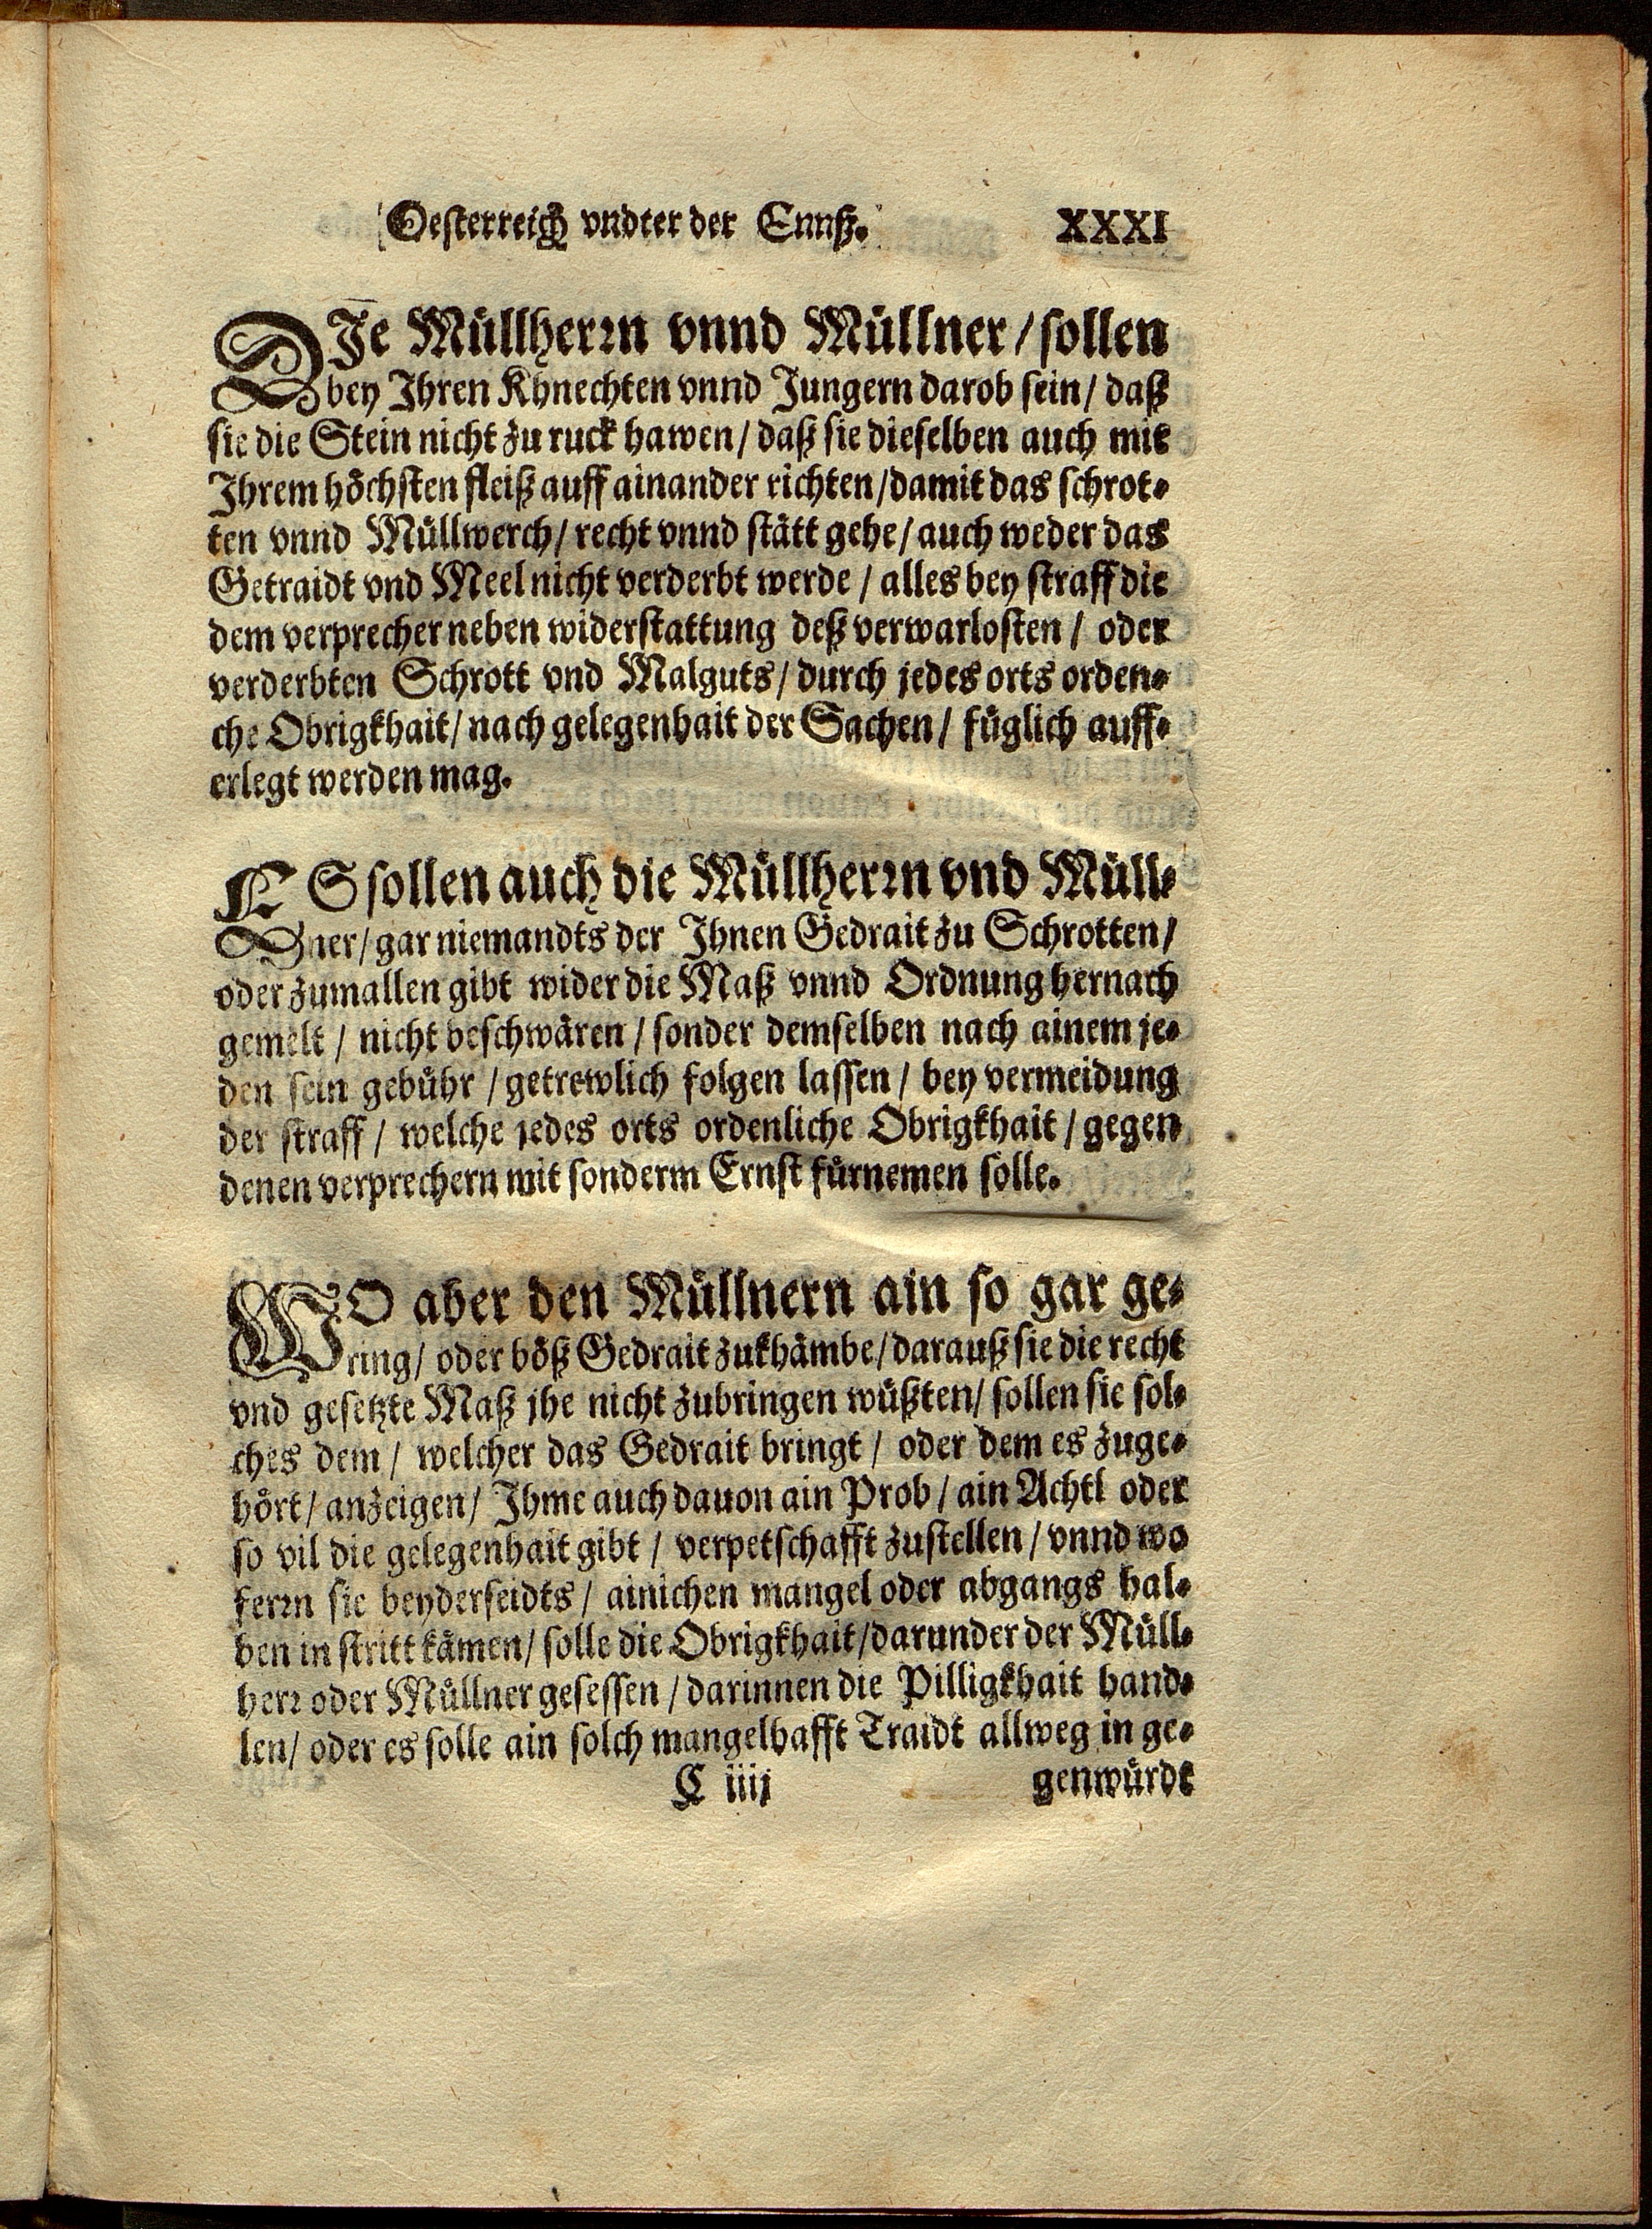 Oesterreich vndter der Ennß. XXXI
DIe Müllherrn vnnd Müllner / sollen
bey Ihren Khnechten vnnd Jungern darob sein / daß
sie die Stein nicht zu ruck hawen / daß sie dieselben auch mit
Ihrem höchsten fleiß auff ainander richten / damit das schrot-
ten vnnd Müllwerch / recht vnnd stätt gehe / auch weder das
Getraidt vnd Meel nicht verderbt werde / alles bey straff die
dem verprecher neben widerstattung deß verwarlosten / oder
verderbten Schrott vnd Malguts / durch jedes orts orden-
che Obrigkhait / nach gelegenhait der Sachen / füglich auff-
erlegt werden mag.
ES sollen auch die Müllherrn vnd Müll-
ner / gar niemandts der Ihnen Gedrait zu Schrotten /
oder zumallen gibt wider die Maß vnnd Ordnung hernach
gemelt / nicht beschwären / sonder demselben nach ainem je-
den sein gebühr / getrewlich folgen lassen / bey vermeidung
der straff / welche jedes orts ordenliche Obrigkhait / gegen
denen verprechern mit sonderm Ernst fürnemen solle.
WO aber den Müllnern ain so gar ge-
ring / oder böß Gedrait zukhämbe / darauß sie die recht
vnd gesetzte Maß jhe nicht zubringen wüßten / sollen sie sol-
ches dem / welcher das Gedrait bringt / oder dem es zuge-
hört / anzeigen / Ihme auch dauon ain Prob / ain Achtl oder
so vil die gelegenhait gibt / verpetschafft zustellen / vnnd wo
ferrn sie beyderseidts / ainichen mangel oder abgangs hal-
ben in stritt kämen / solle die Obrigkhait / darunder der Müll-
herr oder Müllner gesessen / darinnen die Pilligkhait hand-
len / oder es solle ain solch mangelhafft Traidt allweg in ge-
C iiij genwürdt